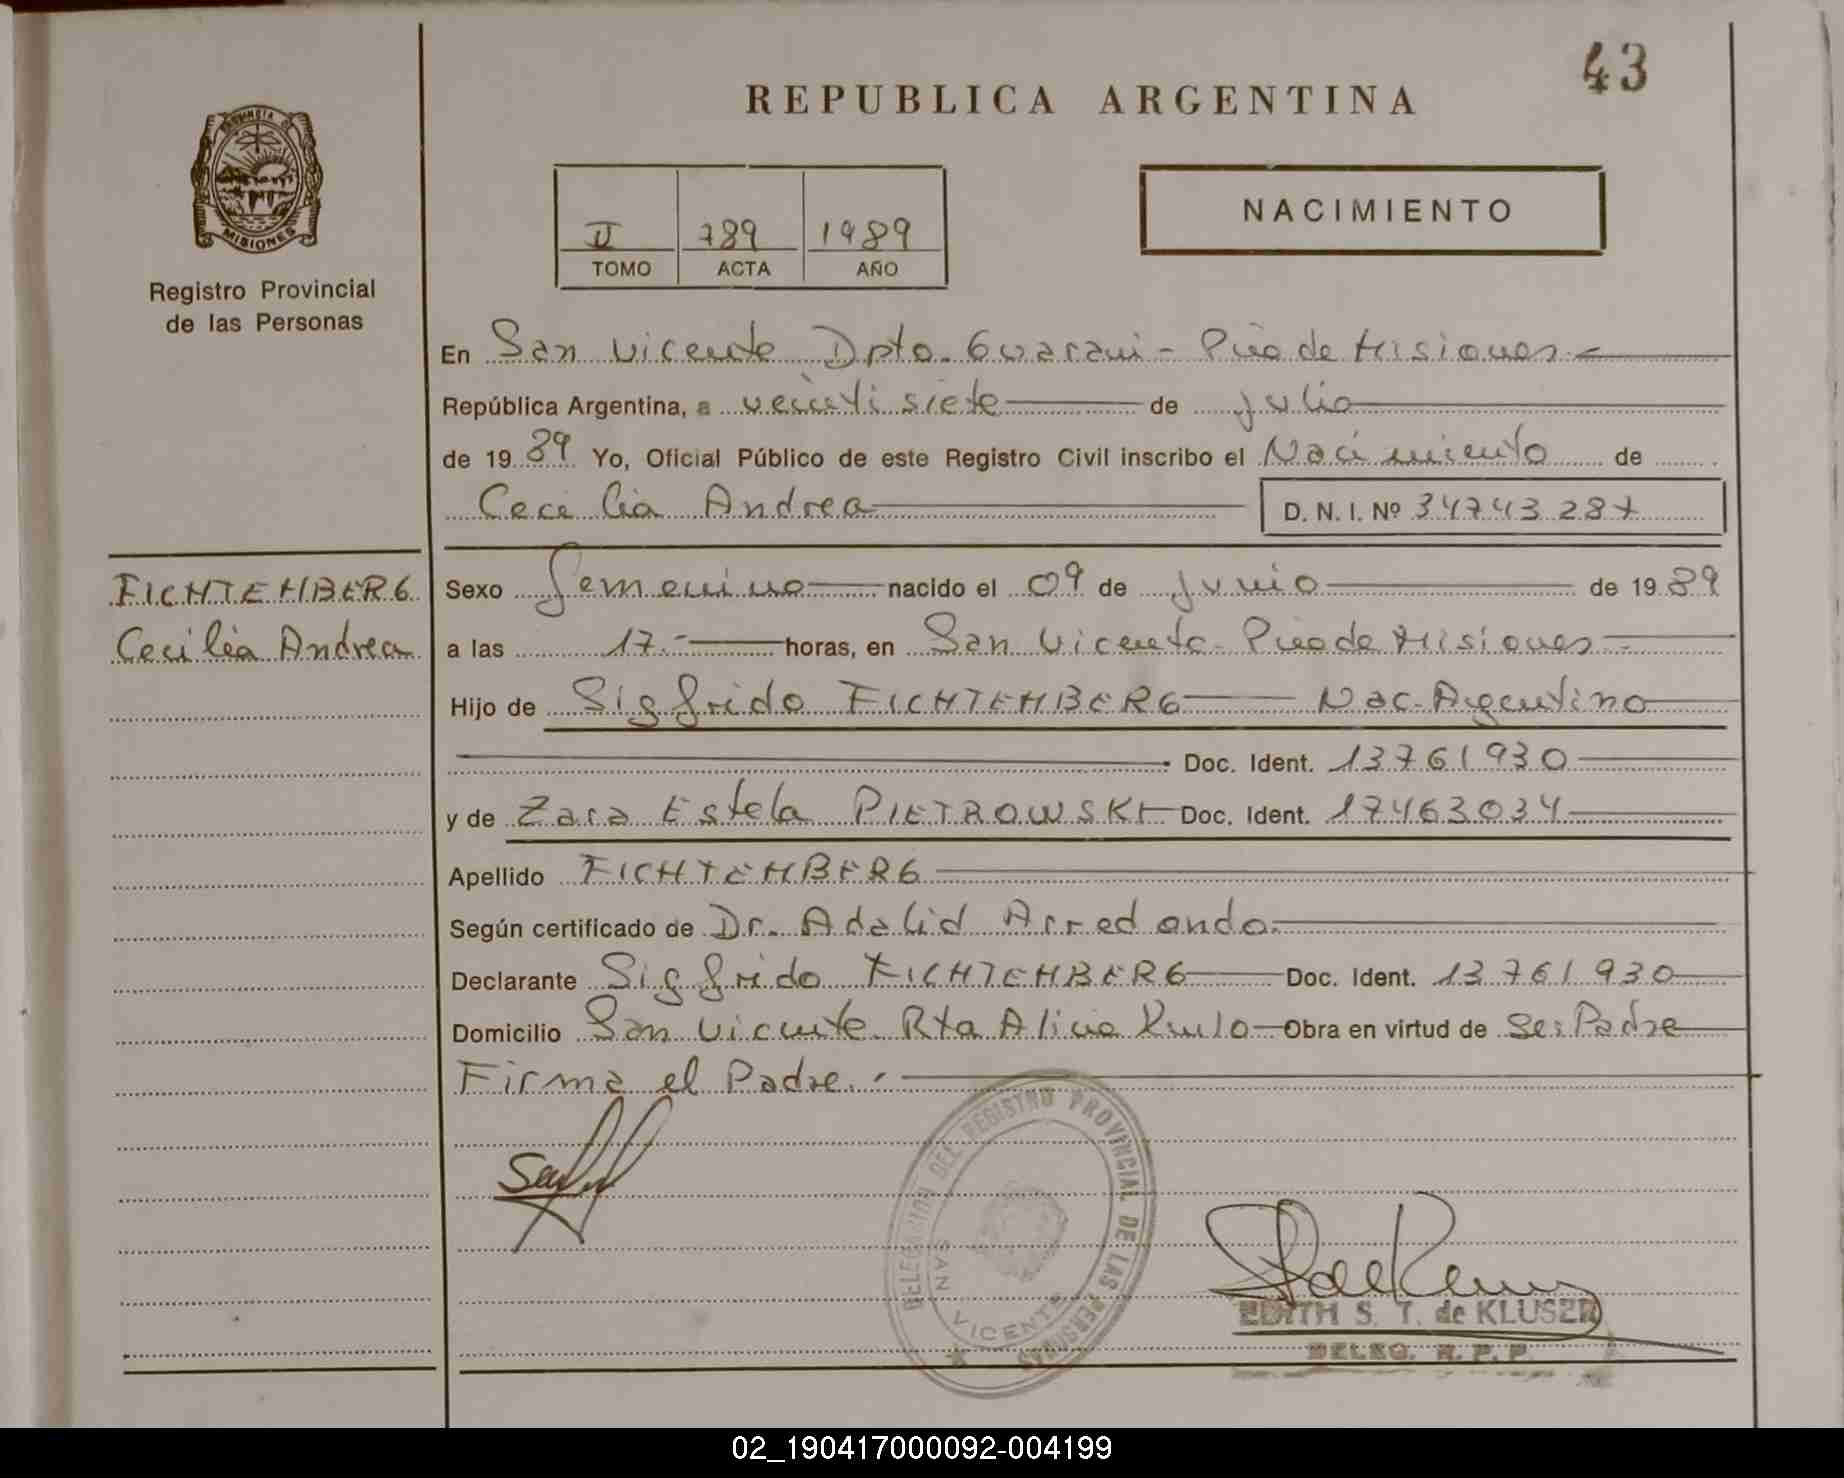 43
REPUBLICA ARGENTINA
PROVINCIA DE
MISIONES
Registro Provincial
de las Personas
II 789 1989
TOMO ACTA AÑO
NACIMIENTO
En San Vicente Dpto. Guarani - Pcia de Misiones.-
República Argentina, a veintisiete de julio
de 19 89 Yo, Oficial Público de este Registro Civil inscribo el Nacimiento de
Cecilia Andrea D. N. I. Nº 34743287
FICHTEMBERG
Cecilia Andrea
Sexo femenino nacido el 09 de junio de 19 89
a las 17.- horas, en San Vicente- Pcia de Misiones
Hijo de Sigfrido FICHTEMBERG Nac. Argentino
Doc. Ident. 13761930
y de Zara Estela PIETROWSKI Doc. Ident. 17463034
Apellido FICHTEMBERG
Según certificado de Dr. Adalid Arredondo.
Declarante Sigfrido FICHTEMBERG Doc. Ident. 13.761.930
Domicilio San Vicente Rta Alicia Obra en virtud de Ser Padre
Firma el Padre.-
DELEGACION DEL REGISTRO PROVINCIAL DE LAS PERSONAS
SAN VICENTE
EDITH S. T. de KLUSER
DELEG. R. P. P.
02_190417000092-004199